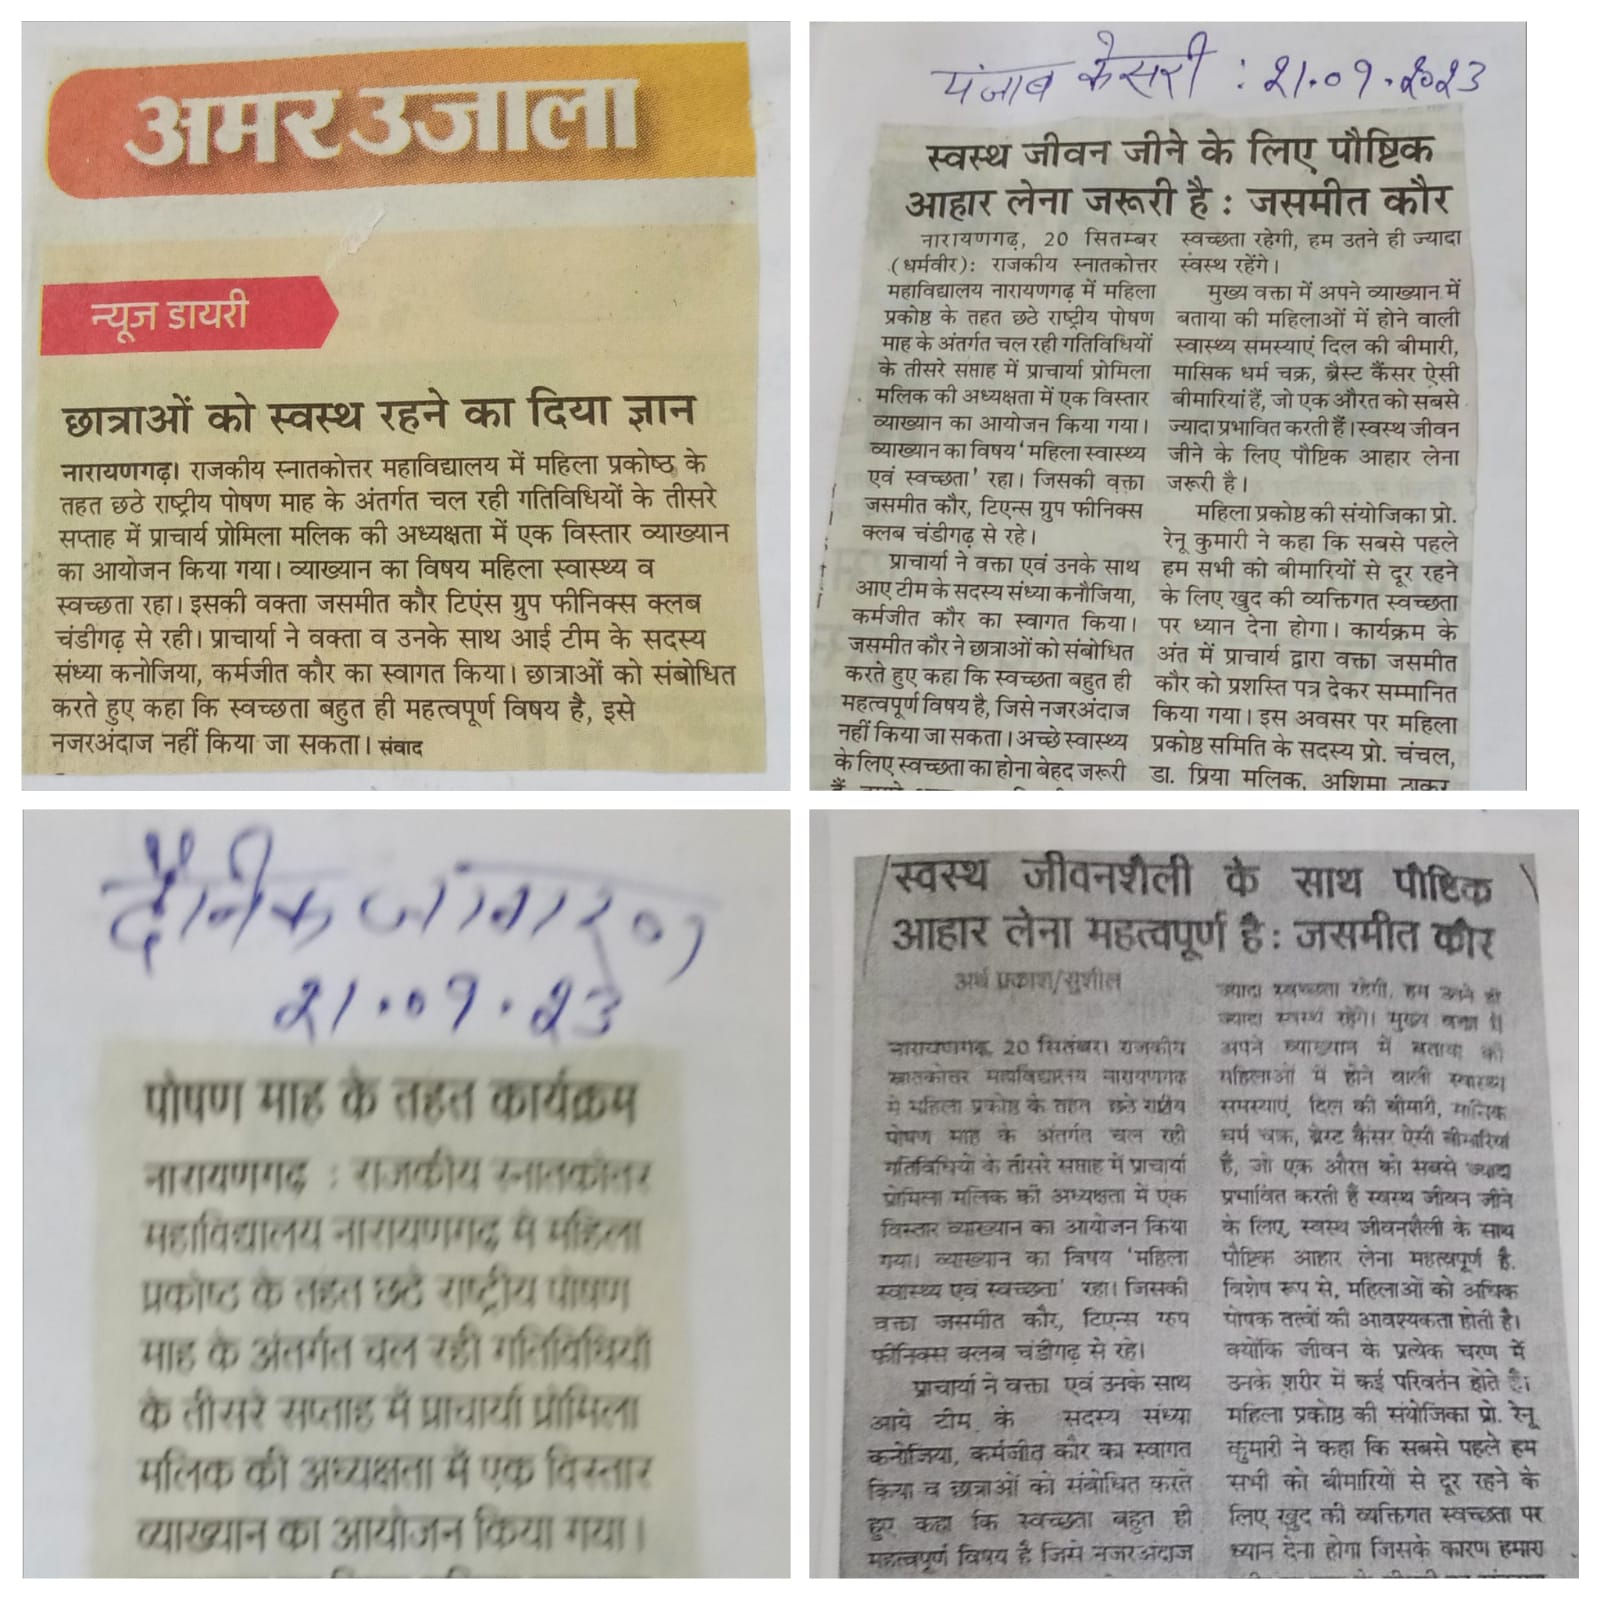 अमर उजाला
न्यूज डायरी
छात्राओं को स्वस्थ रहने का दिया ज्ञान
नारायणगढ़। राजकीय स्नातकोत्तर महाविद्यालय में महिला प्रकोष्ठ के
तहत छठे राष्ट्रीय पोषण माह के अंतर्गत चल रही गतिविधियों के तीसरे
सप्ताह में प्राचार्य प्रोमिला मलिक की अध्यक्षता में एक विस्तार व्याख्यान
का आयोजन किया गया। व्याख्यान का विषय महिला स्वास्थ्य व
स्वच्छता रहा। इसकी वक्ता जसमीत कौर टिएंस ग्रुप फीनिक्स क्लब
चंडीगढ़ से रही। प्राचार्या ने वक्ता व उनके साथ आई टीम के सदस्य
संध्या कनोजिया, कर्मजीत कौर का स्वागत किया। छात्राओं को संबोधित
करते हुए कहा कि स्वच्छता बहुत ही महत्वपूर्ण विषय है, इसे
नजरअंदाज नहीं किया जा सकता। संवाद
पंजाब केसरी : 21.09.2023
स्वस्थ जीवन जीने के लिए पौष्टिक
आहार लेना जरूरी है : जसमीत कौर
नारायणगढ़, 20 सितम्बर
(धर्मवीर): राजकीय स्नातकोत्तर
महाविद्यालय नारायणगढ़ में महिला
प्रकोष्ठ के तहत छठे राष्ट्रीय पोषण
माह के अंतर्गत चल रही गतिविधियों
के तीसरे सप्ताह में प्राचार्या प्रोमिला
मलिक की अध्यक्षता में एक विस्तार
व्याख्यान का आयोजन किया गया।
व्याख्यान का विषय 'महिला स्वास्थ्य
एवं स्वच्छता' रहा। जिसकी वक्ता
जसमीत कौर, टिएन्स ग्रुप फीनिक्स
क्लब चंडीगढ़ से रहे।
प्राचार्या ने वक्ता एवं उनके साथ
आए टीम के सदस्य संध्या कनौजिया,
कर्मजीत कौर का स्वागत किया।
जसमीत कौर ने छात्राओं को संबोधित
करते हुए कहा कि स्वच्छता बहुत ही
महत्वपूर्ण विषय है, जिसे नजरअंदाज
नहीं किया जा सकता। अच्छे स्वास्थ्य
के लिए स्वच्छता का होना बेहद जरूरी
स्वच्छता रहेगी, हम उतने ही ज्यादा
स्वस्थ रहेंगे।
मुख्य वक्ता में अपने व्याख्यान में
बताया की महिलाओं में होने वाली
स्वास्थ्य समस्याएं दिल की बीमारी,
मासिक धर्म चक्र, ब्रैस्ट कैंसर ऐसी
बीमारियां हैं, जो एक औरत को सबसे
ज्यादा प्रभावित करती हैं। स्वस्थ जीवन
जीने के लिए पौष्टिक आहार लेना
जरूरी है।
महिला प्रकोष्ठ की संयोजिका प्रो.
रेनू कुमारी ने कहा कि सबसे पहले
हम सभी को बीमारियों से दूर रहने
के लिए खुद की व्यक्तिगत स्वच्छता
पर ध्यान देना होगा। कार्यक्रम के
अंत में प्राचार्य द्वारा वक्ता जसमीत
कौर को प्रशस्ति पत्र देकर सम्मानित
किया गया। इस अवसर पर महिला
प्रकोष्ठ समिति के सदस्य प्रो. चंचल,
डा. प्रिया मलिक, अशिमा ठाकुर
दैनिक जागरण
21.09.23
पोषण माह के तहत कार्यक्रम
नारायणगढ़ : राजकीय स्नातकोतर
महाविद्यालय नारायणगढ़ में महिला
प्रकोष्ठ के तहत छठे राष्ट्रीय पोषण
माह के अंतर्गत चल रही गतिविधियों
के तीसरे सप्ताह में प्राचार्या प्रोमिला
मलिक की अध्यक्षता में एक विस्तार
व्याख्यान का आयोजन किया गया।
स्वस्थ जीवनशैली के साथ पौष्टिक
आहार लेना महत्वपूर्ण है : जसमीत कौर
अर्थ प्रकाश/सुशील
नारायणगढ़, 20 सितंबर। राजकीय
स्नातकोत्तर महाविद्यालय नारायणगढ़
में महिला प्रकोष्ठ के तहत छठे राष्ट्रीय
पोषण माह के अंतर्गत चल रही
गतिविधियों के तीसरे सप्ताह में प्राचार्या
प्रोमिला मलिक की अध्यक्षता में एक
विस्तार व्याख्यान का आयोजन किया
गया। व्याख्यान का विषय 'महिला
स्वास्थ्य एवं स्वच्छता' रहा। जिसकी
वक्ता जसमीत कौर, टिएन्स ग्रुप
फीनिक्स क्लब चंडीगढ़ से रहे।
प्राचार्या ने वक्ता एवं उनके साथ
आये टीम के सदस्य संध्या
कनोजिया, कर्मजीत कौर का स्वागत
किया व छात्राओं को संबोधित करते
हुए कहा कि स्वच्छता बहुत ही
महत्वपूर्ण विषय है जिसे नजरअंदाज
ज्यादा स्वच्छता रहेगी, हम उतने ही
ज्यादा स्वस्थ रहेंगे। मुख्य वक्ता
अपने व्याख्यान में बताया की
महिलाओं में होने वाली स्वास्थ्य
समस्याएं दिल की बीमारी, मासिक
धर्म चक्र, ब्रेस्ट कैंसर ऐसी बीमारियां
है, जो एक औरत को सबसे ज्यादा
प्रभावित करती हैं स्वस्थ जीवन जीने
के लिए, स्वस्थ जीवनशैली के साथ
पौष्टिक आहार लेना महत्वपूर्ण है.
विशेष रूप से, महिलाओं को अधिक
पोषक तत्वों की आवश्यकता होती है।
क्योंकि जीवन के प्रत्येक चरण में
उनके शरीर में कई परिवर्तन होते है।
महिला प्रकोष्ठ की संयोजिका प्रो. रेनू
कुमारी ने कहा कि सबसे पहले हम
सभी को बीमारियों से दूर रहने के
लिए खुद की व्यक्तिगत स्वच्छता पर
ध्यान देना होगा जिसके कारण हमारा